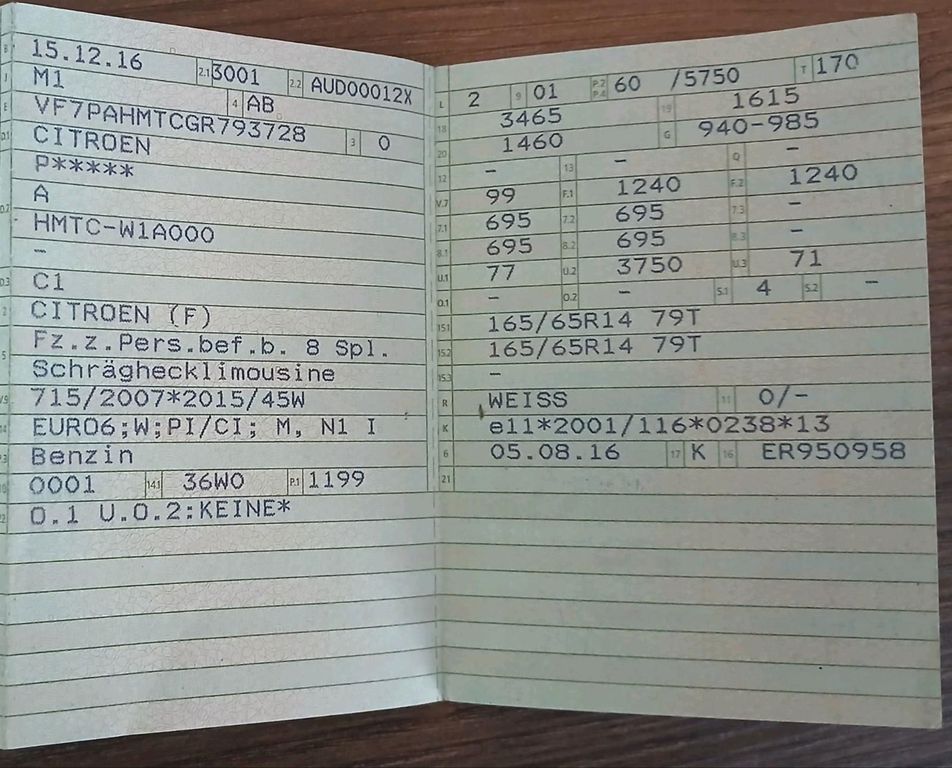 B 15.12.16 2.1 3001 2.2 AUD00012X
J M1 4 AB
E VF7PAHMTCGR793728 3 0
D.1 CITROEN
P*****
A
D.2 HMTC-W1A000
-
D.3 C1
2 CITROEN (F)
5 Fz.z.Pers.bef.b. 8 Spl.
Schräghecklimousine
V.9 715/2007*2015/45W
14 EURO6;W;PI/CI; M, N1 I
P.3 Benzin
10 0001 14.1 36W0 P.1 1199
22 O.1 U.O.2:KEINE*
L 2 9 01 P.2 P.4 60 /5750 T 170
18 3465 19 1615
20 1460 G 940-985
12 - 13 - Q -
V.7 99 F.1 1240 F.2 1240
7.1 695 7.2 695 7.3 -
8.1 695 8.2 695 8.3 -
U.1 77 U.2 3750 U.3 71
O.1 - O.2 - S.1 4 S.2 -
15.1 165/65R14 79T
15.2 165/65R14 79T
15.3 -
R WEISS 11 0/-
K e11*2001/116*0238*13
6 05.08.16 17 K 16 ER950958
21